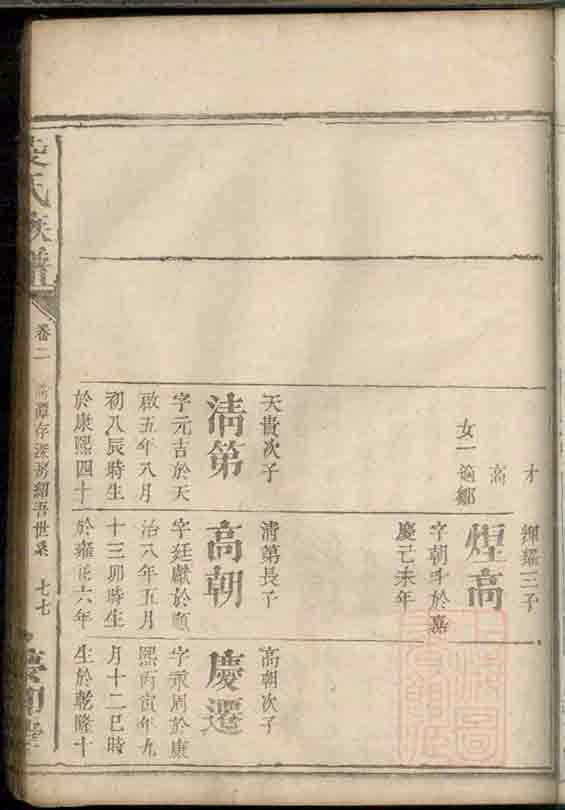 才
高
女一適鄒
天貴次子
清第
字元吉於天
啟五年八月
初八辰時生
於康熙四十
輝耀三子
煌高
字朝斗於嘉
慶己未年
清第長子
高朝
字廷獻於順
治八年五月
十三卯時生
於雍正六年
高朝次子
慶遷
字承周於康
熙丙寅年九
月十二巳時
生於乾隆十
氏族譜
卷二
存深房紹吾世系
七七